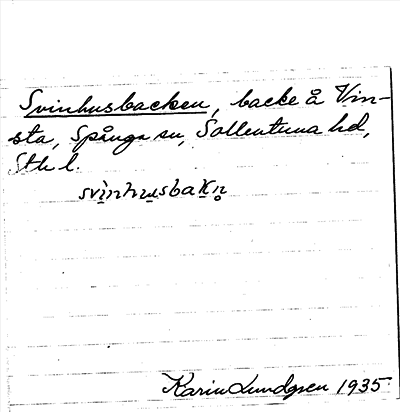 Svinhusbacken, backe å Vin-
sta, Spånga sn, Sollentuna hd,
Sth l.
svinhusbakn̥
Karin Lundgren 1935